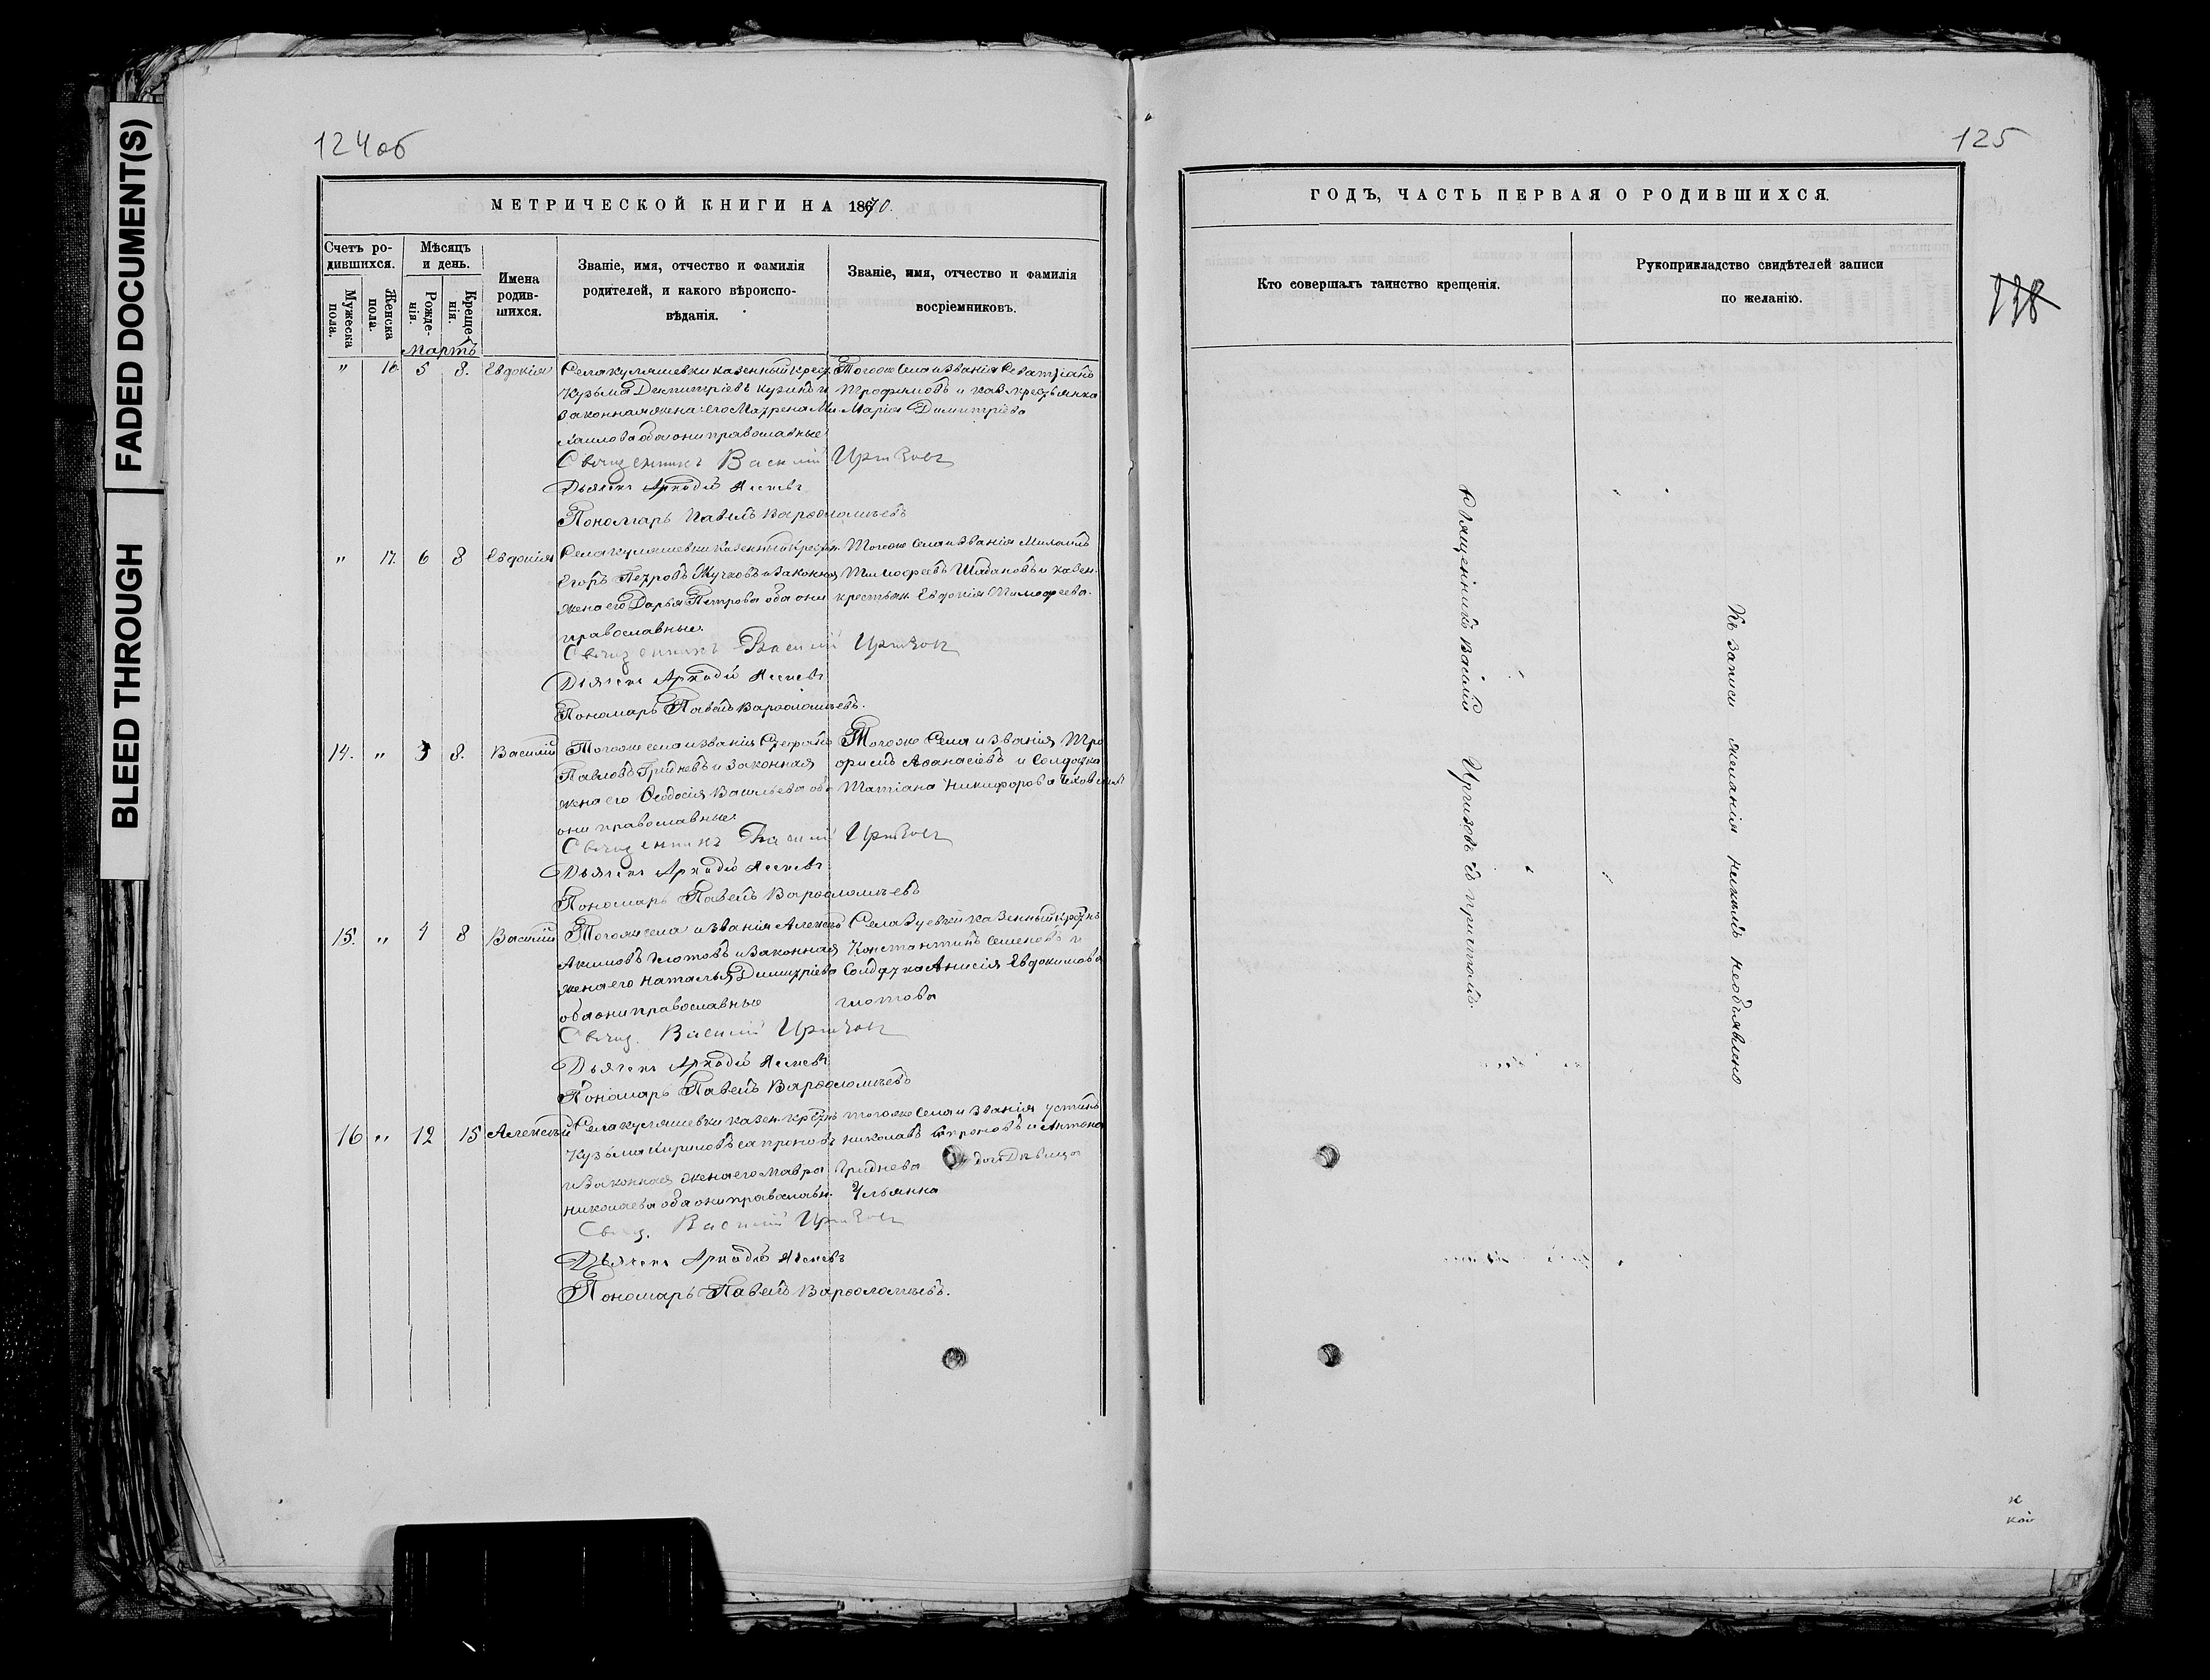 FADED DOCUMENT(S)
BLEED THROUGH
124об
МЕТРИЧЕСКОЙ КНИГИ НА 1870.
Счетъ ро-
дившихся.
Мужеска
пола.
Женска
пола.
Мѣсяцъ
и день.
Рожде-
нія.
Креще-
нія.
Мартъ
Имена
родив-
шихся.
Званіе, имя, отчество и фамилія
родителей, и какого вѣроиспо-
вѣданія.
Званіе, имя, отчество и фамилія
воспріемниковъ.
" 16. 5 8. Евдокія
Села Куляшевки казенный крест.
Кузьма Димитріевъ Кузинъ и
законная жена его Матрена Ми-
хаилова оба они православные
Тогоже села и званія
Трофимовъ и каз. крестьянка
Марія Димитріева
Священникъ Василій Иргизовъ
Дьячекъ Аркадій
Пономарь Павелъ Варѳоломѣевъ
" 17. 6 8 Евдокія
Села Куляшевки казенный крестн.
Егоръ Петровъ Жучковъ и законная
жена его Дарья Петрова оба они
православные.
Тогоже села и званія Михаилъ
Тимофеевъ Шабановъ и казен.
крестьян. Евдокія Тимофеева.
Священникъ Василій Иргизовъ
Дьячекъ Аркадій
Пономарь Павелъ Варѳоломѣевъ.
14. " 3 8. Василій
Тогоже села и званія Стефанъ
Павловъ Гридневъ и законная
жена его Ѳеодосія Васильева оба
они православные.
Тогоже села и званія Тро
фимъ Аѳанасіевъ и солдатка
Татіана Никифорова
Священникъ Василій Иргизовъ
Дьячекъ Аркадій
Пономарь Павелъ Варѳоломѣевъ
15. " 4 8 Василій
Тогоже села и званія Алексѣй
Акимовъ и законная
жена его Наталья Димитріева
оба они православные
Села Зуевки казенный крестнъ
Константинъ Семеновъ и
солдатка Анисія Евдокимова
Свящ. Василій Иргизовъ
Дьячекъ Аркадій
Пономарь Павелъ Варѳоломѣевъ
16 " 12 15 Алексѣй
Села Куляшевки казен. крестнъ
Кузьма Кириловъ Сапроновъ
и законная жена его Мавра
Николаева оба они православн.
Тогоже села и званія Устинъ
Николаевъ Сапроновъ и Антона
Гриднева дочь Дѣвица
Ульянна
Свящ. Василій Иргизовъ
Дьячекъ Аркадій
Пономарь Павелъ Варѳоломѣевъ.
125
ГОДЪ, ЧАСТЬ ПЕРВАЯ О РОДИВШИХСЯ.
Кто совершалъ таинство крещенія.
Рукоприкладство свидѣтелей записи
по желанію.
Священникъ Василій Иргизовъ съ причтомъ.
Къ записи желанія никѣмъ необъявлено